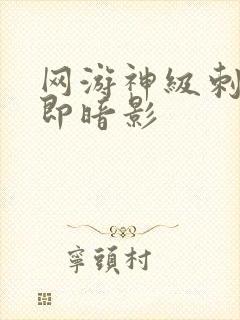 网游神级刺
即暗影
寧頭村